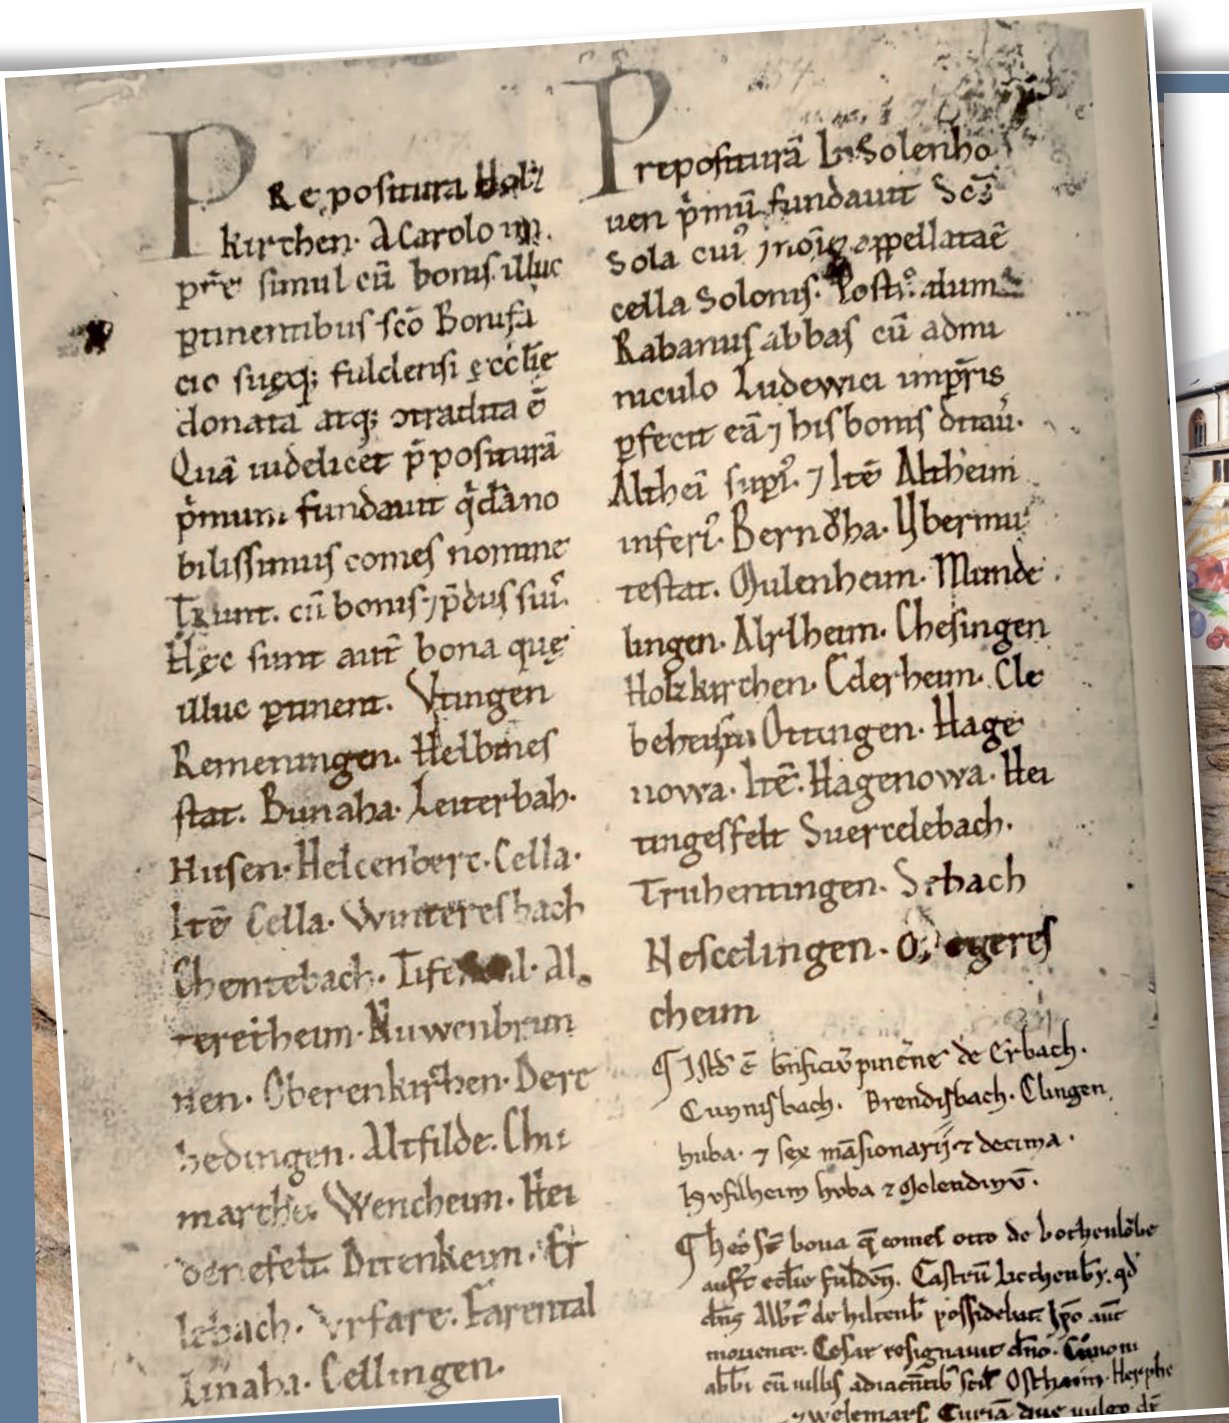 PRepositura Holz
kirchen· A Carolo im
pr̄e simul cū bonis illuc
ptinentibus sc̄o Bonifa
cio suęq; fuldensi ęccl̄ie
donata atq; ɔtradita ē
Quā uidelicet p̄positurā
p̄mum fundauit q̇dā no
bilissimus comes nomine
Trount. cū bonis ⁊ p̄diis
Hęc sunt aut̄ bona quę
illuc ptinent. Vtingen
Remeningen. Helbines
stat. Bunaha· Leiterbah·
Husen· Helcenberc· Cella·
Itē Cella· Winteresbach
Chentebach· Al
tereitheim· Nuwenbrun
nen· Oberenkirchen· Dert
hedingen. Altfilde. Chu
marcha. Wencheim· Hei
denefelt. Dittenkeim· Er
lebach· Vrfare. Farental
Linaha. Cellingen.
Prepositurā In Solenho
uen p̄mū fundauit Sc̄s
Sola cui⁹ ⁊ noīe appellata ē
cella Solonis. Post. dum
Rabanus abbas cū admi
niculo Ludewici imp̄ris
pfecit eā ⁊ his bonis ditau.
Althei sup̄i. ⁊ Itē Altheim
inferi. Berndha. Ybermu
testat. Gulenheim. Munde
lingen. Alrlheim. Chesingen
Holzkirchen. Ederheim. Cle
Ottingen. Hage
nowa. Itē. Hagenowa. Hei
tingesfelt Suercelebach.
Truhentingen. Srbach
Nescelingen.
cheim
¶ Istd̄ ē bn̄ficiū pincīne de Erbach.
Cunnisbach. Brendisbach. Clingen
huba. ⁊ sex māsionarij ⁊ decima.
Husilheim huba ⁊ Molendinū.
¶ Hec st̄ bona q̄ comes otto de bothenlōbe
eccl̄ie fulden̄. Castrū qd̄
dn̄s Alb̄t de hiltenb̄ possidebat Ip̄o aūt
mouente. Cesar resignauit dn̄o Cunoni
abb̄i cū uillis adiacēntib̄ scil̄ Ostheim. Herphe
⁊ welemars Curiā